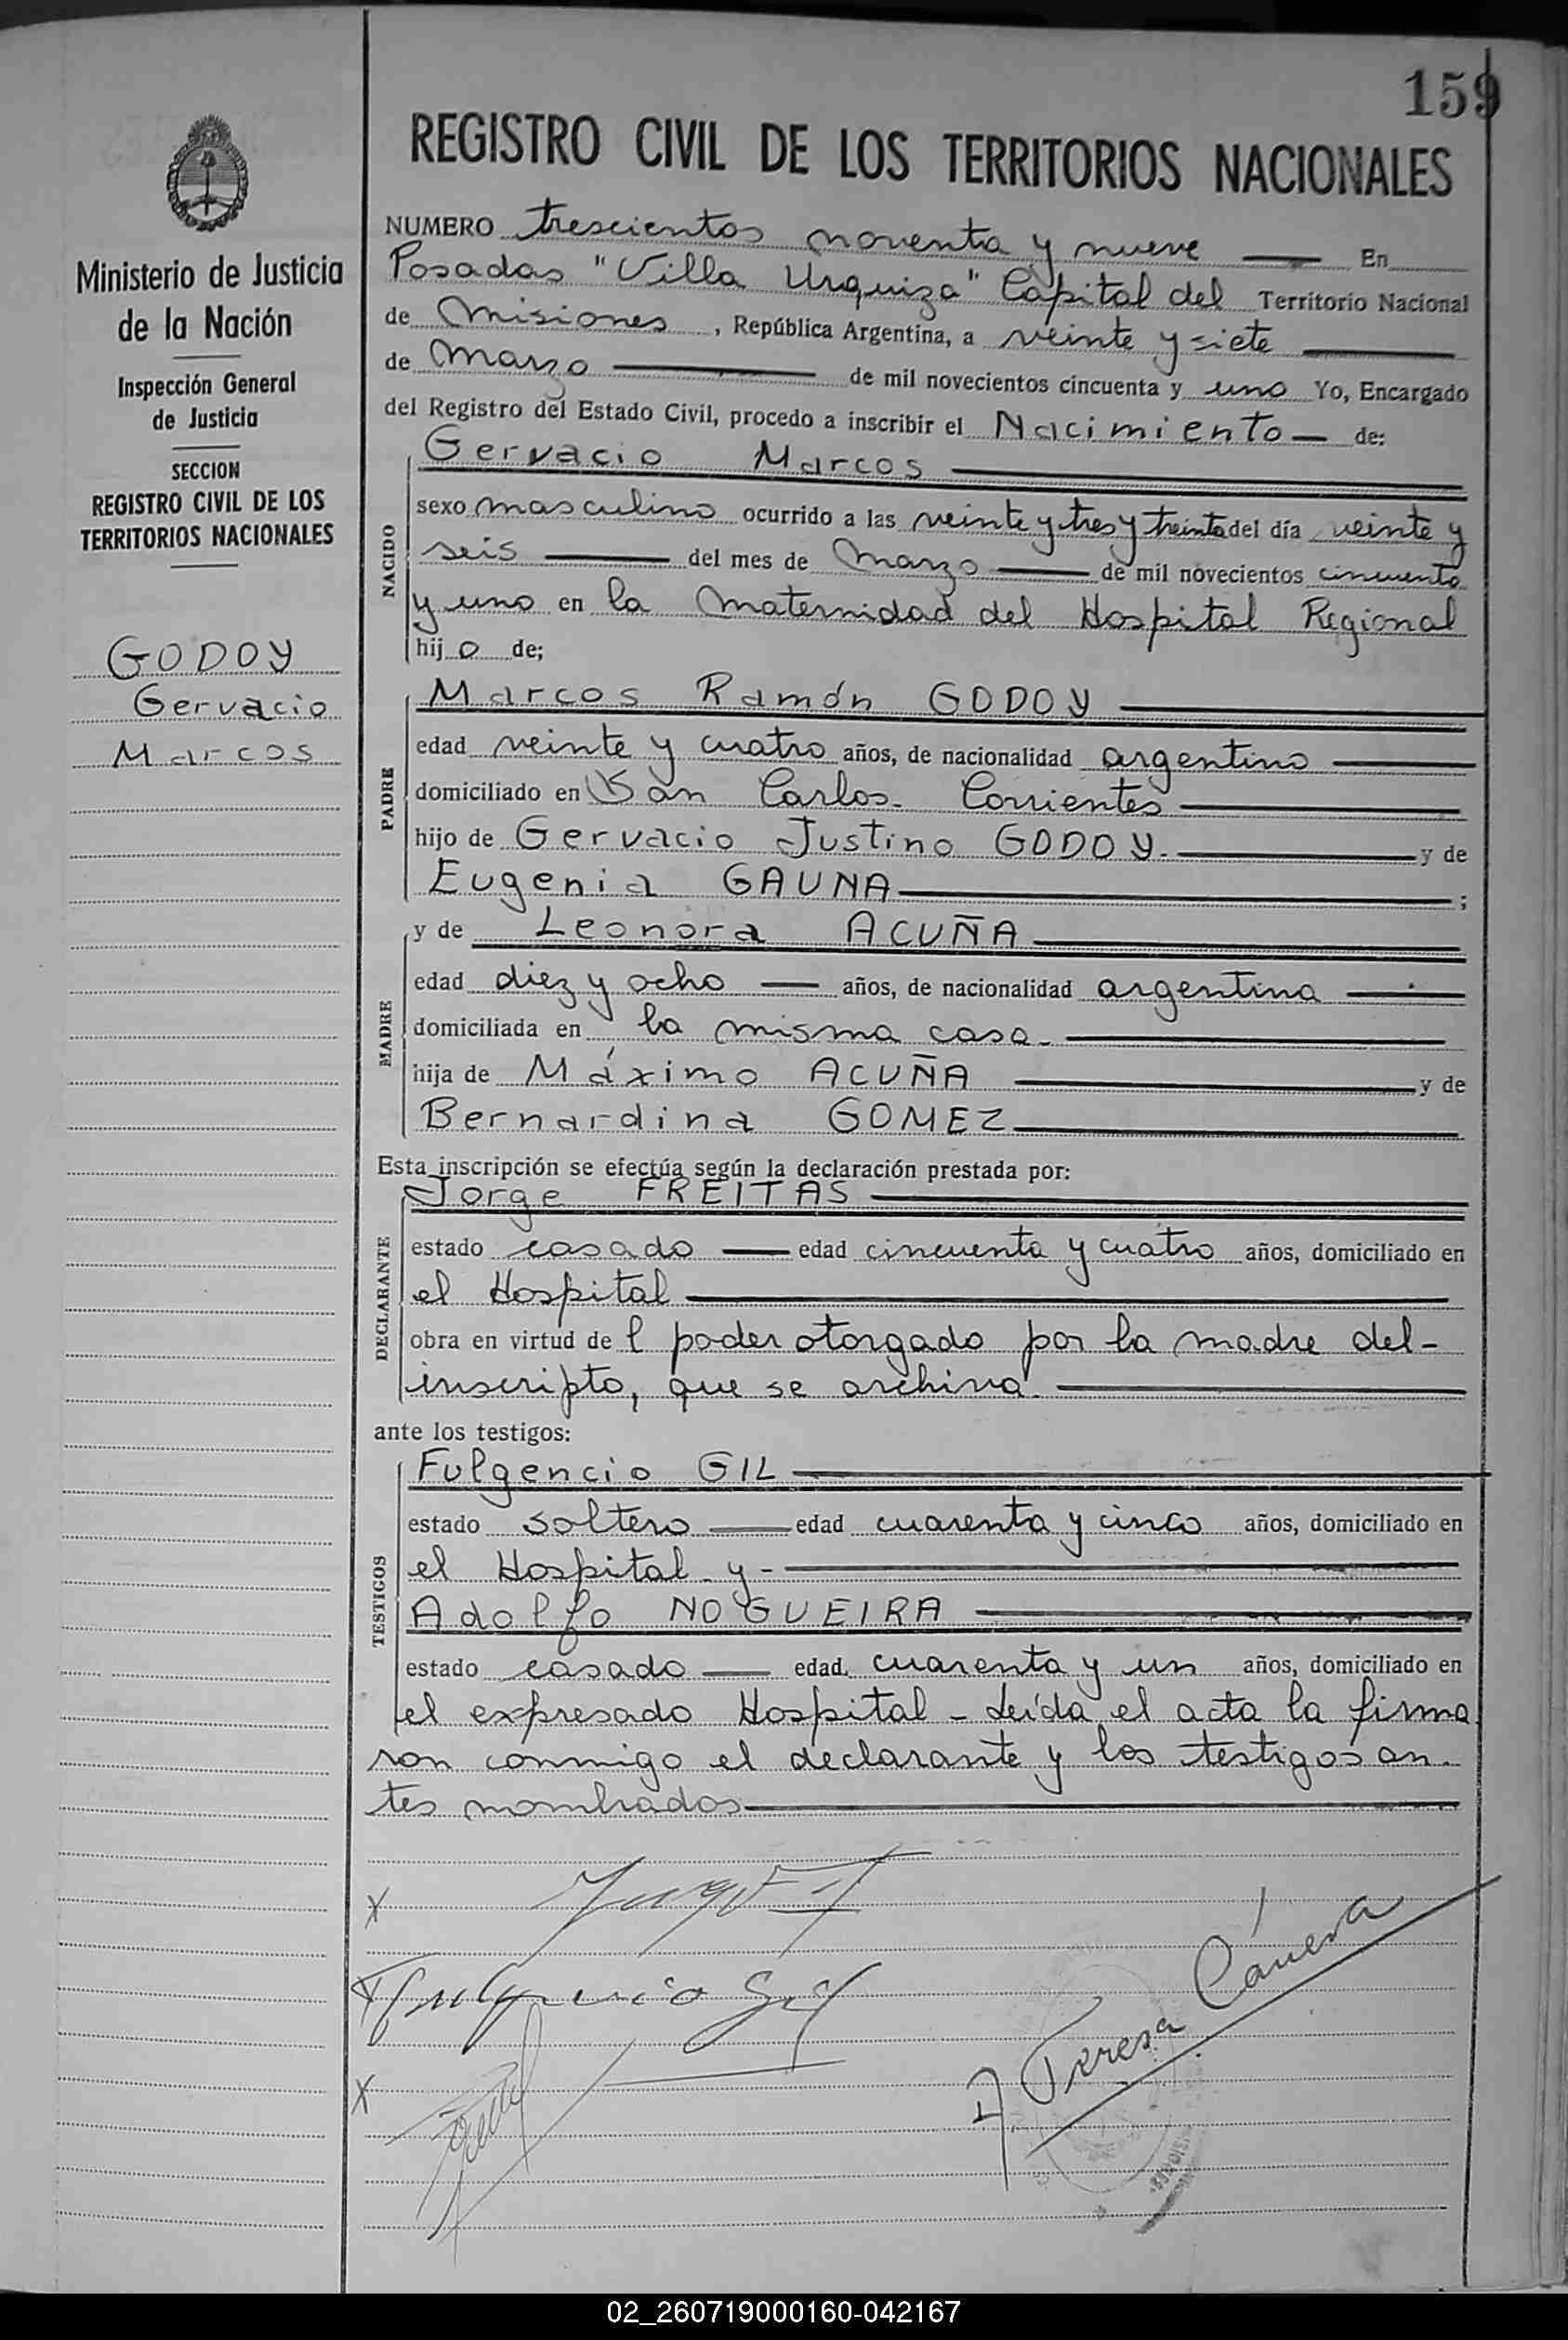 159
REGISTRO CIVIL DE LOS TERRITORIOS NACIONALES
Ministerio de Justicia
de la Nación
Inspección General
de Justicia
SECCION
REGISTRO CIVIL DE LOS
TERRITORIOS NACIONALES
GODOY
Gervacio
Marcos
NUMERO trescientos noventa y nueve En
Posadas "Villa Urquiza" Capital del Territorio Nacional
de Misiones, República Argentina, a veinte y siete
de Marzo de mil novecientos cincuenta y uno Yo, Encargado
del Registro del Estado Civil, procedo a inscribir el Nacimiento de:
NACIDO
Gervacio Marcos
sexo masculino ocurrido a las veinte y tres y treinta del día veinte y
seis del mes de Marzo de mil novecientos cincuenta
y uno en la Maternidad del Hospital Regional
hijo de;
PADRE
Marcos Ramón GODOY
edad veinte y cuatro años, de nacionalidad argentino
domiciliado en San Carlos - Corrientes
hijo de Gervacio Justino GODOY. y de
Eugenia GAUNA ;
MADRE
y de Leonora ACUÑA
edad diez y ocho años, de nacionalidad argentina
domiciliada en la misma casa.
hija de Máximo ACUÑA y de
Bernardina GOMEZ
Esta inscripción se efectúa según la declaración prestada por:
DECLARANTE
Jorge FREITAS
estado casado edad cincuenta y cuatro años, domiciliado en
el Hospital
obra en virtud del poder otorgado por la madre del-
inscripto, que se archiva.
ante los testigos:
TESTIGOS
Fulgencio GIL
estado soltero edad cuarenta y cinco años, domiciliado en
el Hospital y -
Adolfo NOGUEIRA
estado casado edad cuarenta y un años, domiciliado en
el expresado Hospital - Leída el acta la firma
ron conmigo el declarante y los testigos an-
tes nombrados
Fulgencio Gil
Teresa Cánera
MISIONES
02_260719000160-042167